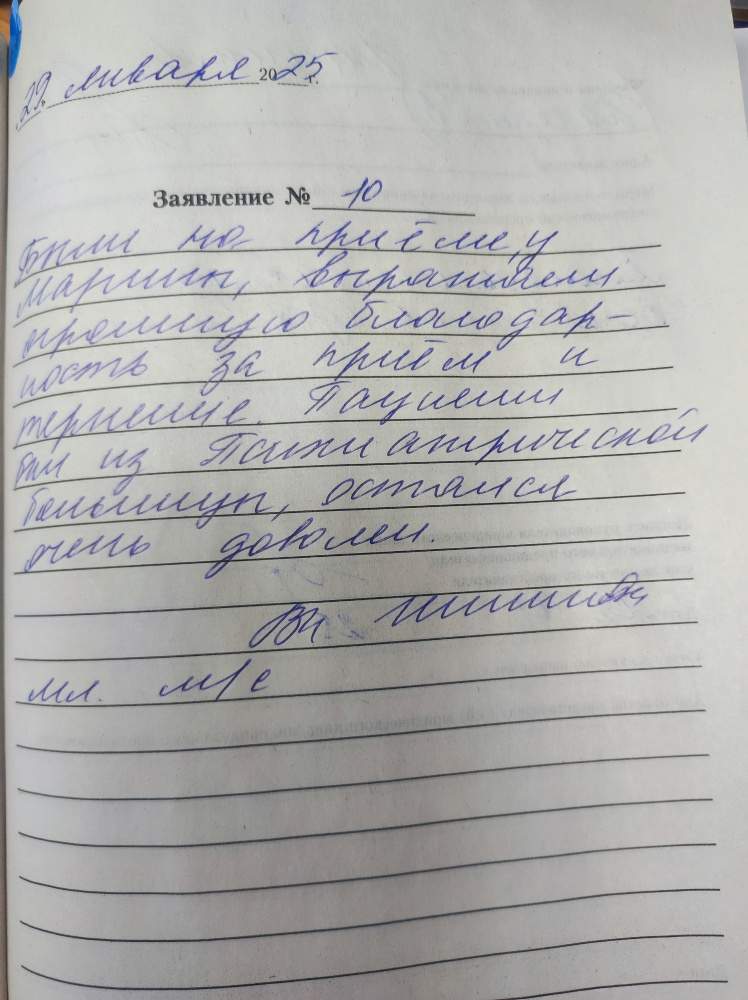 29. января 2025 г.
Заявление № 10
Были на приёме, у
Марины, выражаем
огромную благодар-
ность за приём и
терпение. Пациент
был из Психиатрической
больницы, остался
очень доволен.
мл. м/с